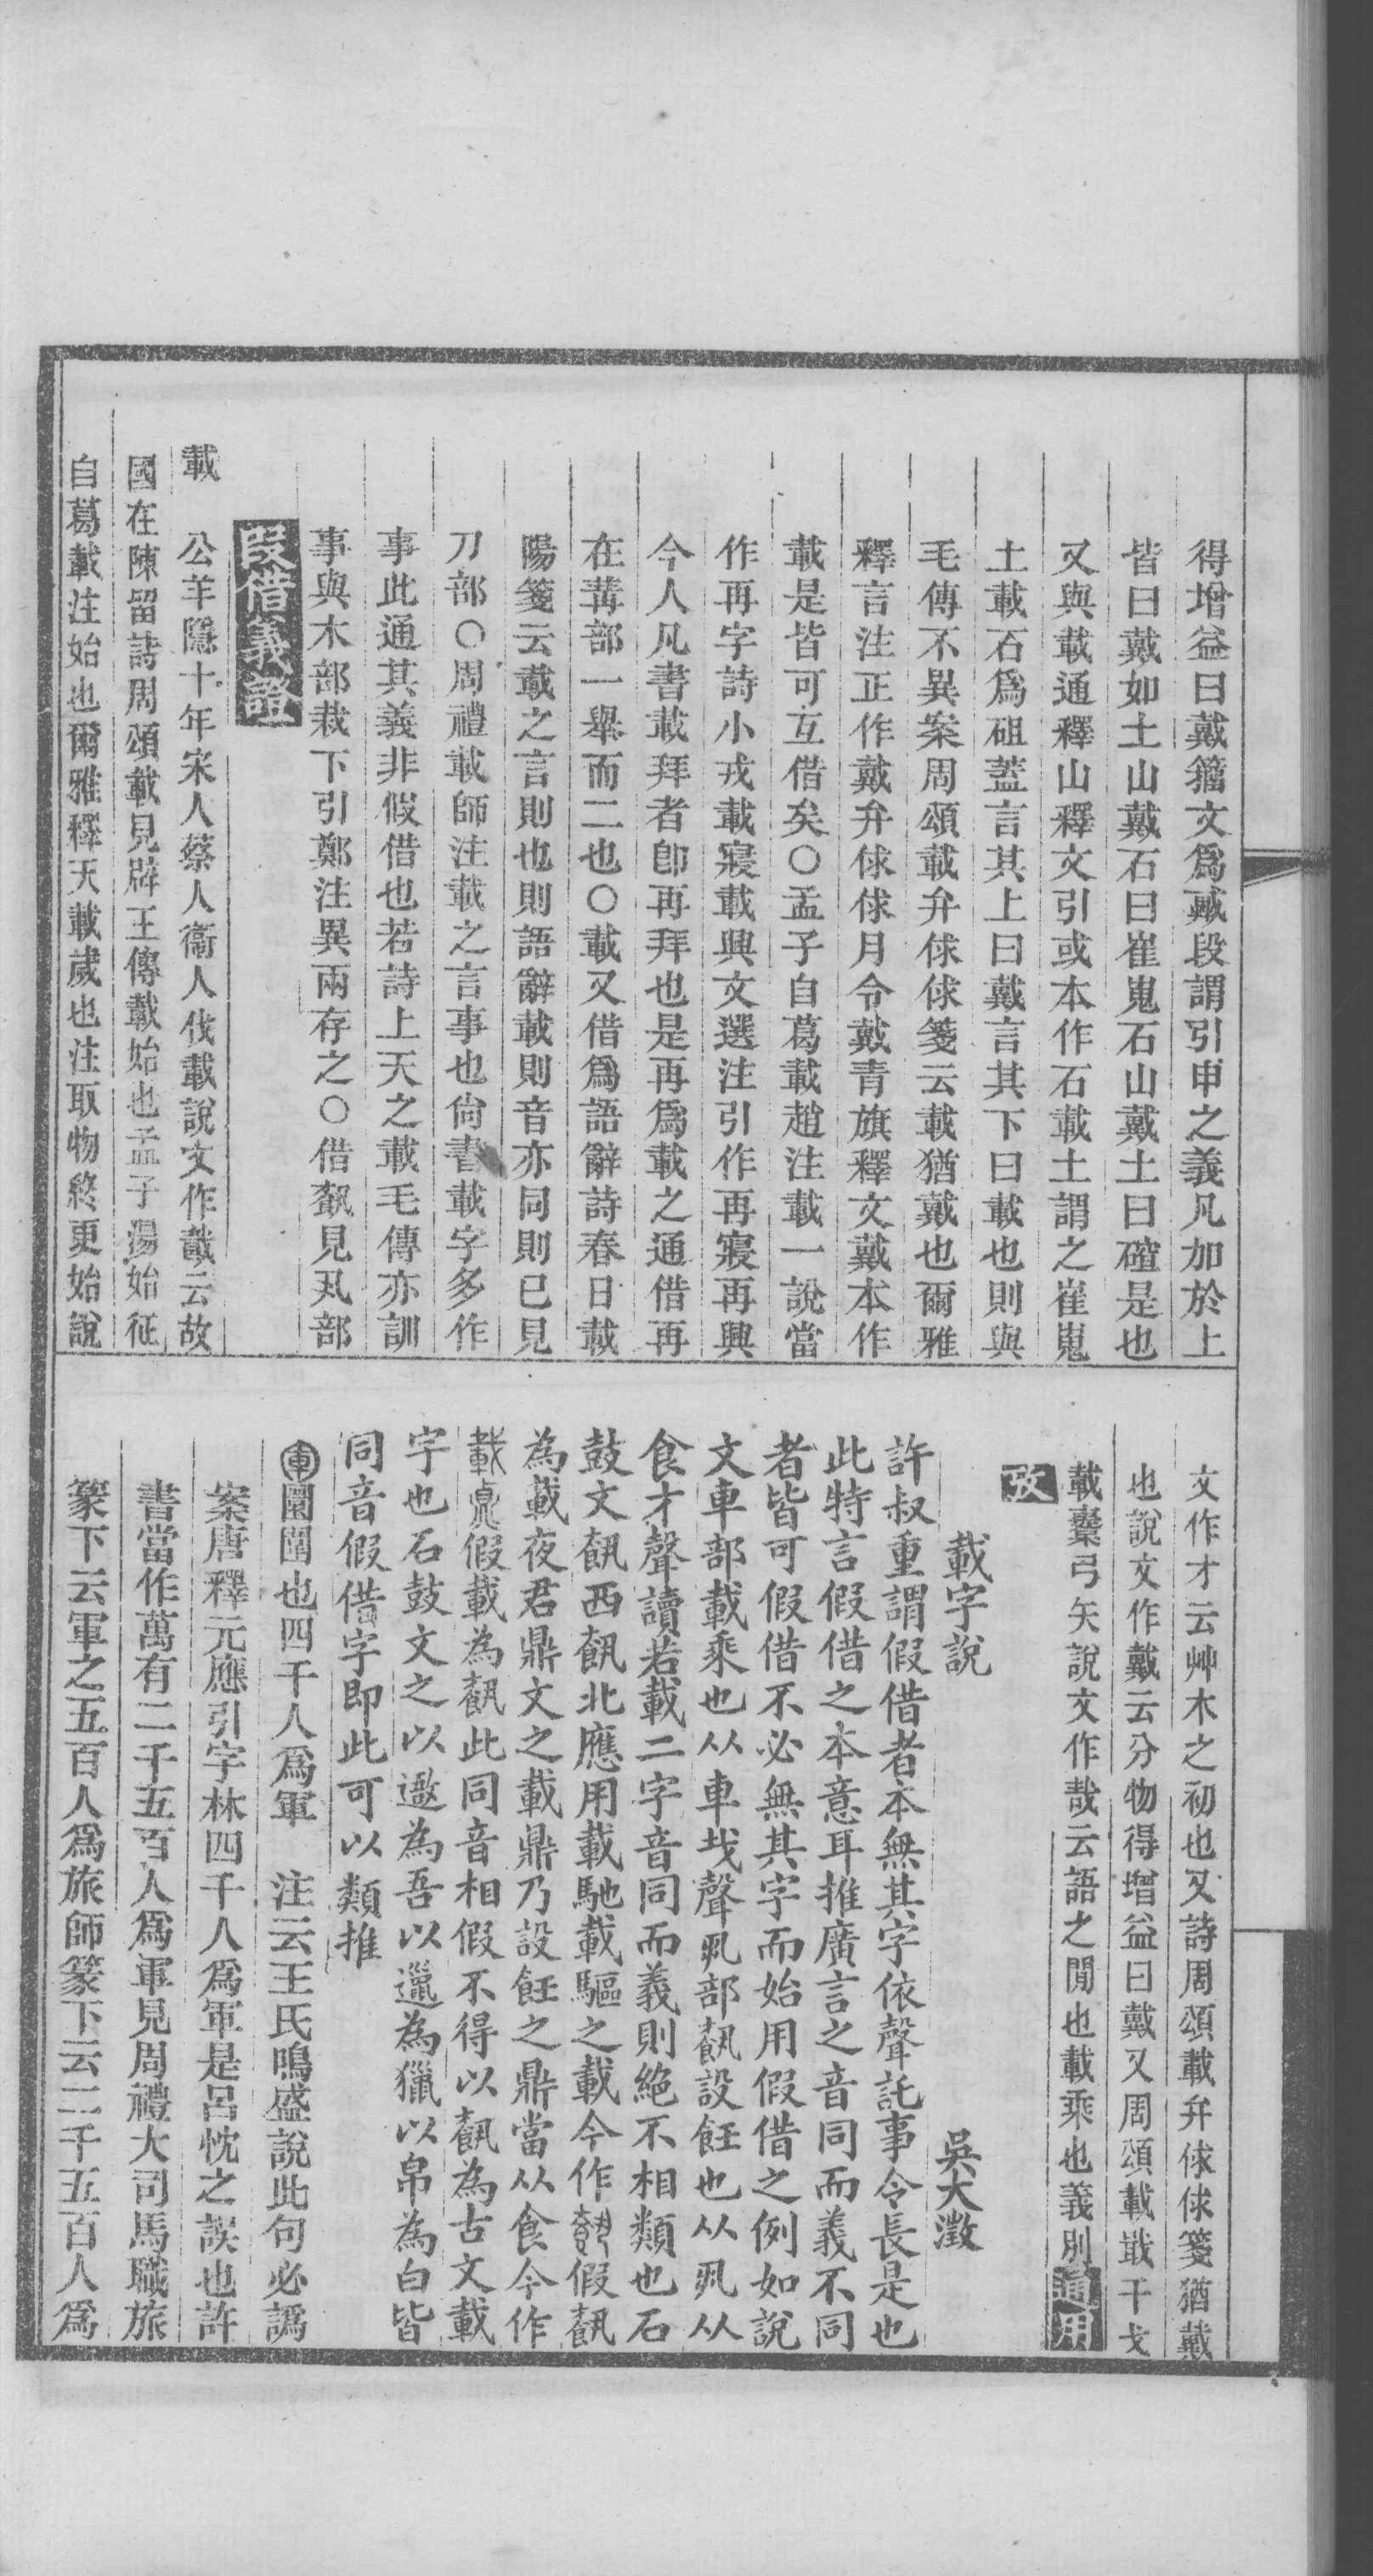 得增益曰戴籒文爲戴段謂引申之義凡加於上
皆曰戴如土山戴石曰崔嵬石山戴土曰確是也
又與載通釋山釋文引或本作石載土謂之崔嵬
土載石爲砠蓋言其上曰戴言其下曰載也則與
毛傳不異案周頌載弁俅俅箋云載猶戴也爾雅
釋言注正作戴弁俅俅月令戴青旗釋文戴本作
載是皆可互借矣○孟子自葛載趙注載一說當
作再字詩小戎載寢載興文選注引作再寢再興
今人凡書載拜者卽再拜也是再爲載之通借再
在冓部一舉而二也○載又借爲語辭詩春日載
陽箋云載之言則也則語辭載則音亦同則巳見
刀部○周禮載師注載之言事也尙書載字多作
事此通其義非假借也若詩上天之載毛傳亦訓
事與木部栽下引鄭注異兩存之○借𩛥見丮部
叚借義證
載　公羊隱十年宋人蔡人衞人伐載說文作䵧云故
國在陳留詩周頌載見辟王傳載始也孟子湯始征
自葛載注始也爾雅釋天載歲也注取物終更始說
文作才云艸木之初也又詩周頌載弁俅俅箋猶戴
也說文作戴云分物得增益曰戴又周頌載戢干戈
載櫜弓矢說文作哉云語之閒也載乘也義別通用
攷
載字說　吳大澂
許叔重謂假借者本無其字依聲託事令長是也
此特言假借之本意耳推廣言之音同而義不同
者皆可假借不必無其字而始用假借之例如說
文車部載乘也从車𢦏聲丮部𩛥設飪也从丮从
食才聲讀若載二字音同而義則絕不相類也石
鼓文𩛥西𩛥北應用載馳載驅之載今作𩛥假𩛥
為載夜君鼎文之載鼎乃設飪之鼎當从食今作
載鼎假載為𩛥此同音相假不得以𩛥為古文載
字也石鼓文之以遬為吾以邋為獵以帛為白皆
同音假借字即此可以類推
軍圜圍也四千人爲軍　注云王氏鳴盛說此句必譌
案唐釋元應引字林四千人爲軍是呂忱之誤也許
書當作萬有二千五百人爲軍見周禮大司馬職旅
篆下云軍之五百人爲旅師篆下云二千五百人爲